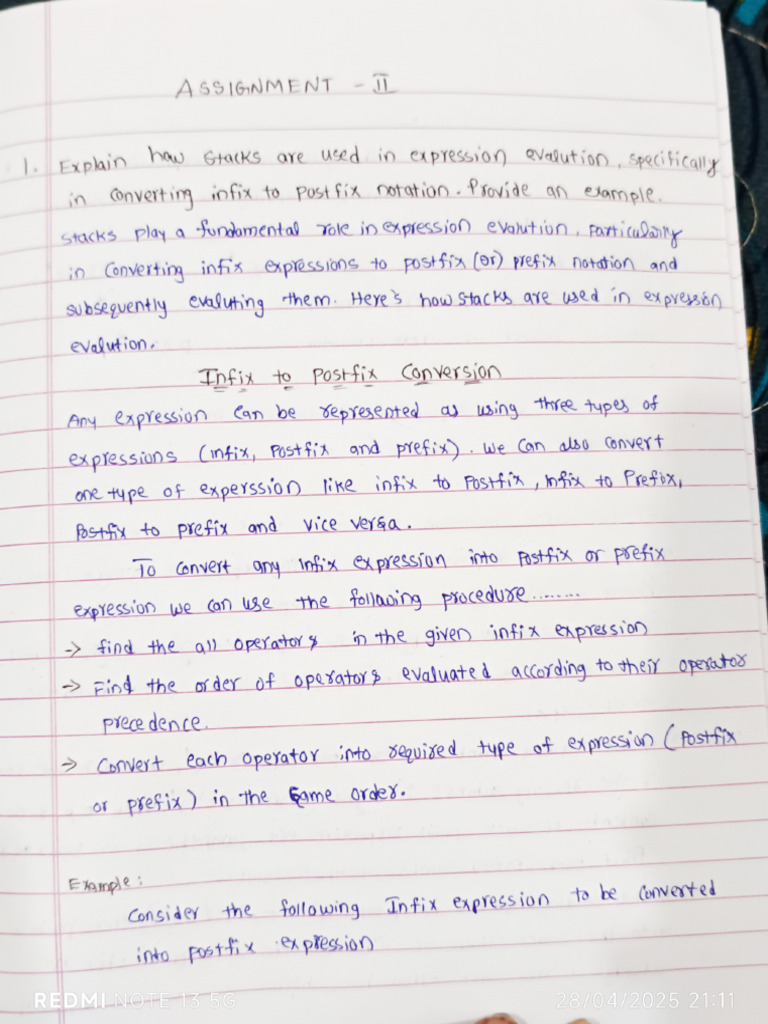 ASSIGNMENT - II
1. Explain how Stacks are used in expression evalution, specifically
in converting infix to postfix notation. Provide an example.
Stacks play a fundamental role in expression evalution, particularly
in converting infix expressions to postfix (or) prefix notation and
subsequently evaluting them. Here's how stacks are used in expression
evalution.
Infix to Postfix Conversion
Any expression can be represented as using three types of
expressions (infix, Postfix and prefix). We can also convert
one type of experssion like infix to Postfix, Infix to Prefix,
Postfix to prefix and vice versa.
To convert any Infix expression into Postfix or prefix
expression we can use the following procedure........
→ find the all operators in the given infix expression
→ Find the order of operators evaluated according to their operator
precedence.
→ Convert each operator into required type of expression (Postfix
or prefix) in the same order.
Example:
Consider the following Infix expression to be converted
into postfix expression
REDMI NOTE 13 5G
28/04/2025 21:11